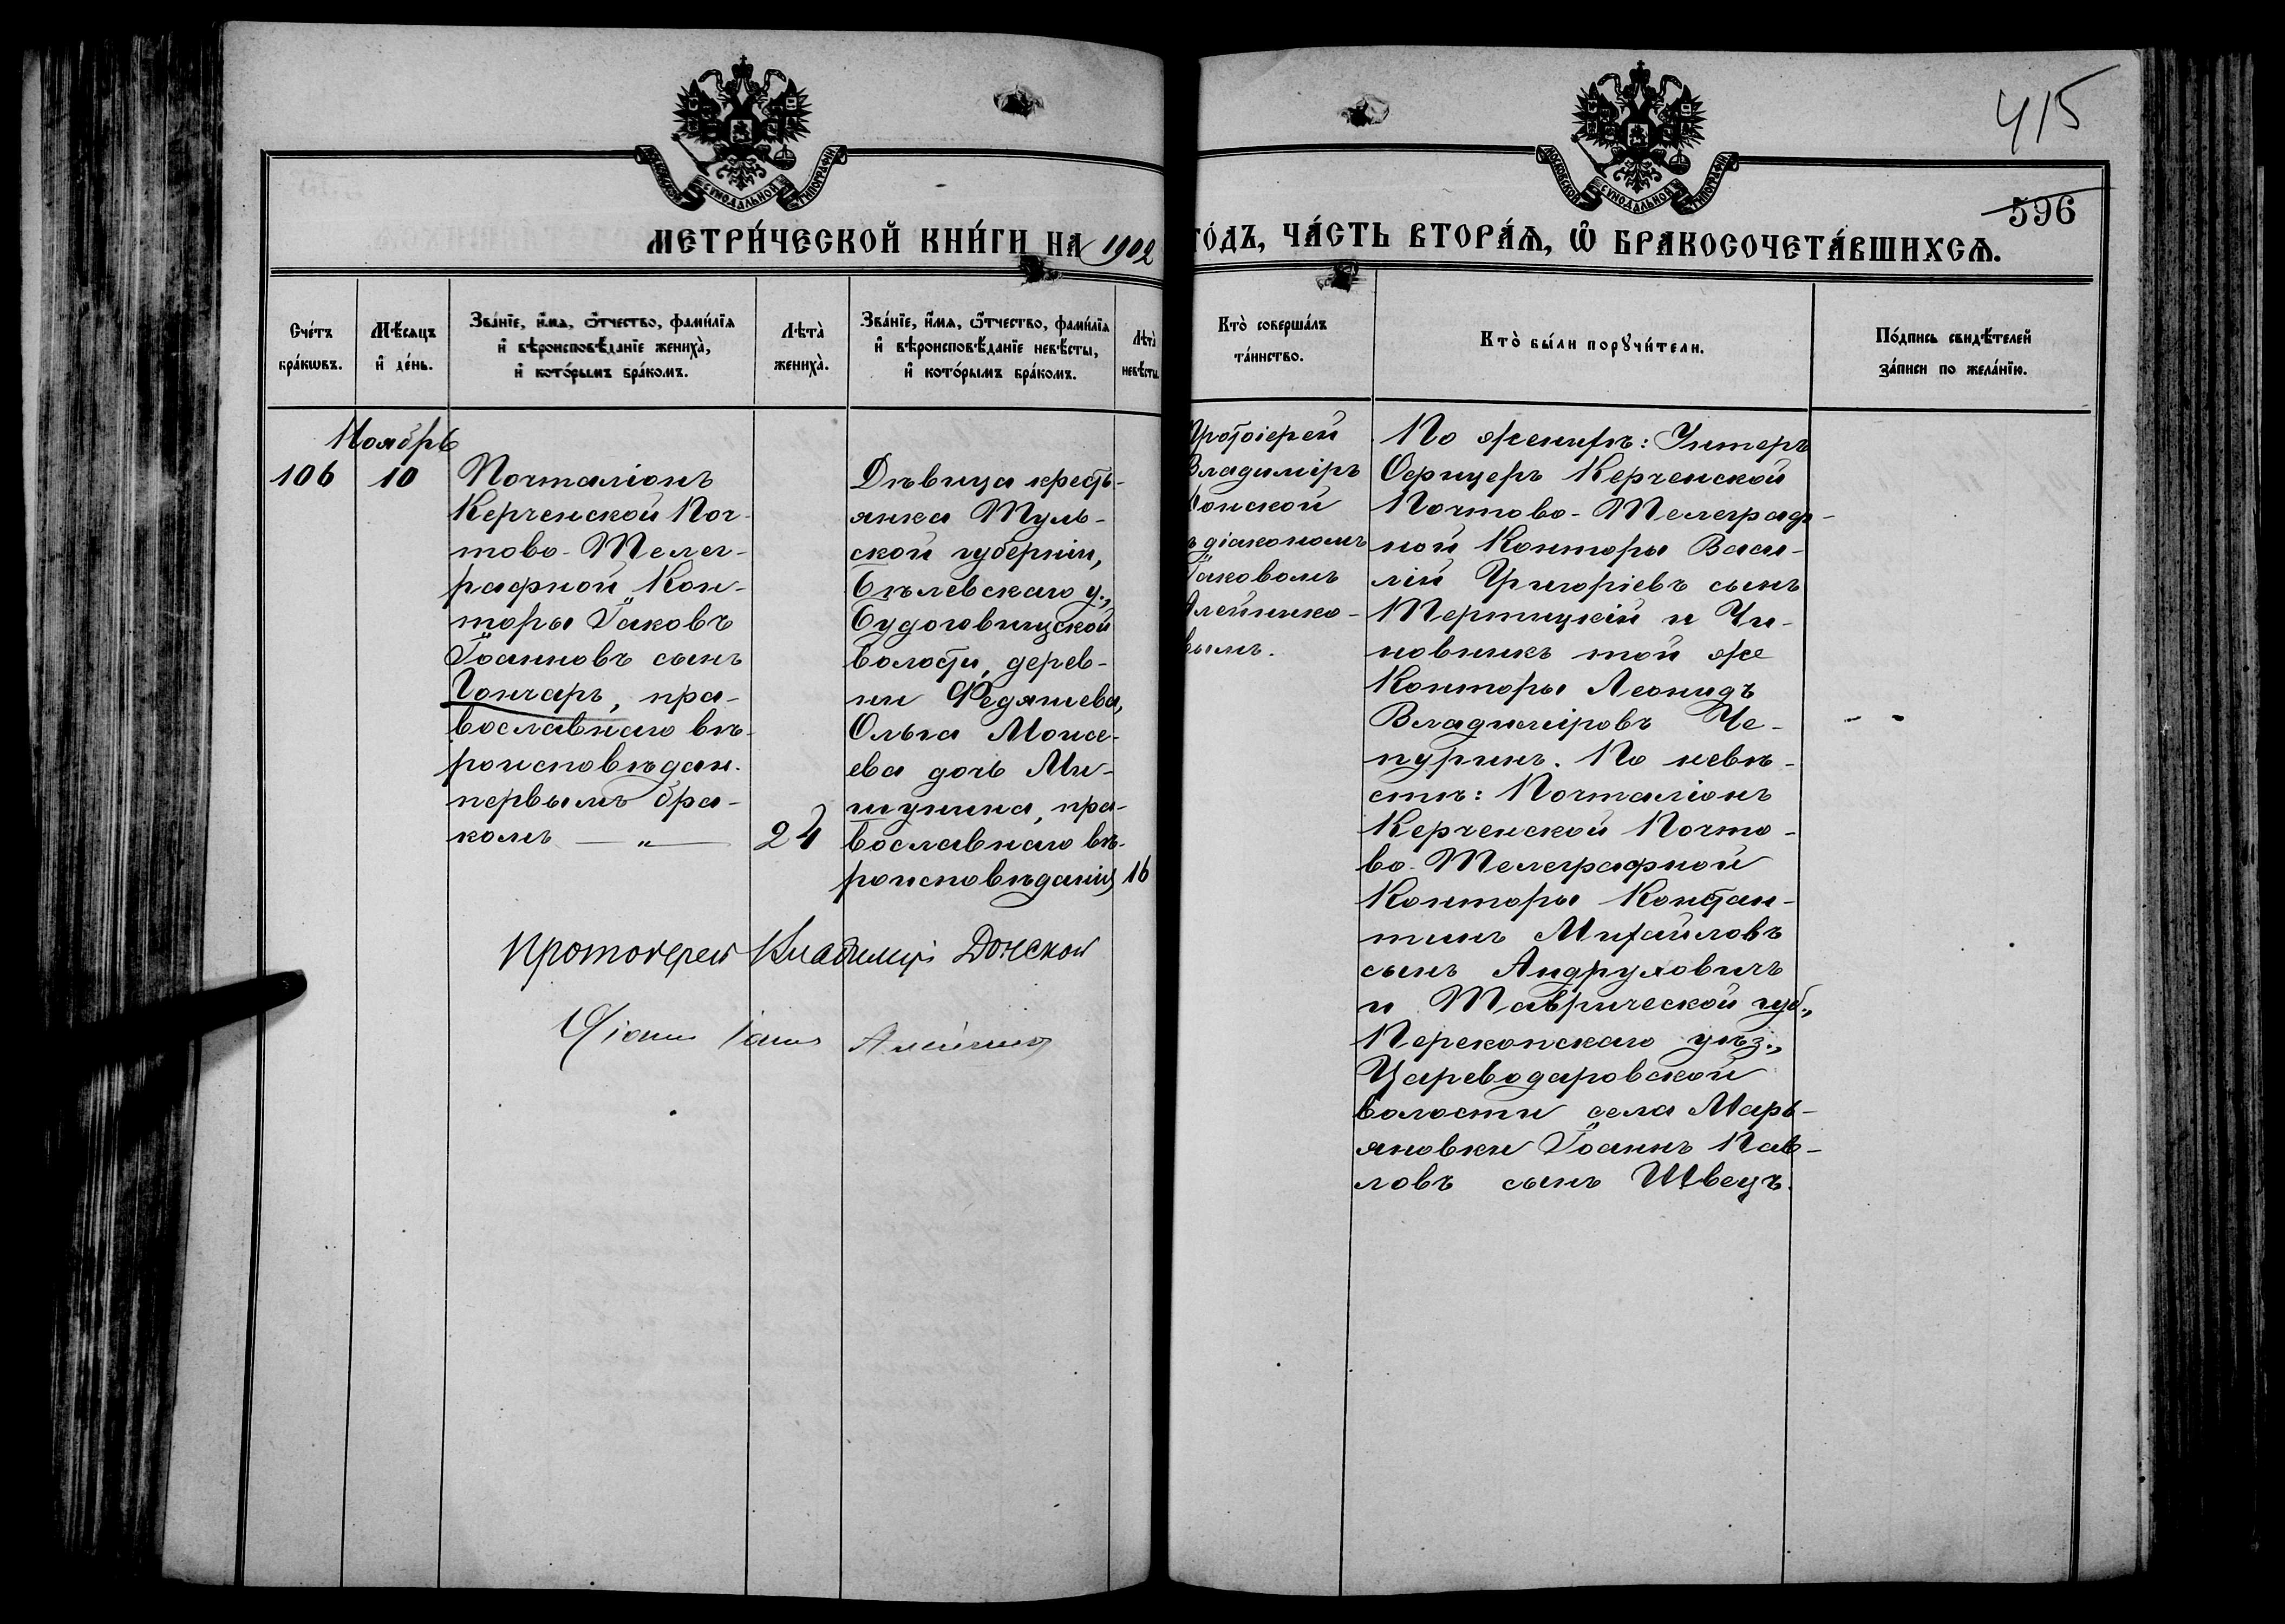 415
596
МОСКОВСКОЙ СѴНОДАЛЬНОЙ ТИПОГРАФІИ
МОСКОВСКОЙ СѴНОДАЛЬНОЙ ТИПОГРАФІИ
МЕТРИ́ЧЕСКОЙ КНИ́ГИ НА 1902
ГО́ДЪ, ЧА́СТЬ ВТОРА́Ѧ, Ѽ БРАКОСОЧЕТА́ВШИХСѦ.
Сче́тъ
бра́кωвъ.
Мѣ́сѧцъ
и҆ де́нь.
Зва́нїе, и҆́мѧ, ѻ҆́тчество, фамил́їѧ
и҆ вѣроисповѣ́данїе жениха̀,
и҆ кото́рымъ бра́комъ.
Лѣта̀
жениха̀.
Зва́нїе, и҆́мѧ, ѻ҆́тчество, фамил́їѧ
и҆ вѣроисповѣ́данїе невѣ́сты,
и҆ кото́рымъ бра́комъ.
Лѣта̀
невѣ́сты.
Кто̀ соверша́лъ
та́инство.
Кто̀ бы́ли порꙋчи́тели.
По́дпись свидѣ́телей
за́писи по жела́нїю.
Ноябрь
106
10
Почталіонъ
Керченской Поч-
тово-Телег-
рафной Кон-
торы Іаковъ
Іоанновъ сынъ
Гончаръ, пра-
вославнаго вѣ-
роисповѣдан.
первымъ бра-
комъ — „ —
24
Дѣвица кресть-
янка Туль-
ской губерніи,
Бѣлевскаго у.,
Будоговищской
волости, дерев-
ни Федяшева,
Ольга Моисе-
ева дочь Ми-
шунина, пра-
вославнаго вѣ-
роисповѣданія
16
Протоіерей Владиміръ Донской
Протоіерей
Владиміръ
Донской
съ діакономъ
Іаковомъ
Алейнико-
вымъ.
По женихѣ: Унтеръ
Офицеръ Керченской
Почтово-Телеграф-
ной Конторы Васи-
лій Григоріевъ сынъ
Мертицкій и Чи-
новникъ той же
Конторы Леонидъ
Владиміровъ Че-
пуринъ. По невѣ-
стѣ: Почталіонъ
Керченской Почто-
во-Телеграфной
Конторы Констан-
тинъ Михайловъ
сынъ Андруховичъ
и Таврической губ.,
Перекопскаго уѣз.,
Цареводаровской
волости села Марь-
яновки Іоаннъ Пав-
ловъ сынъ Швецъ.